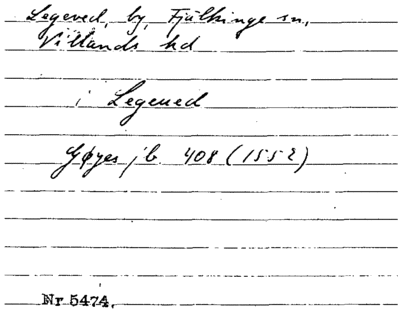 Legeved, by, Fjälkinge sn,
Villands hd
i Legeued
Gøyes jb 408 (1552)
Nr 5474.